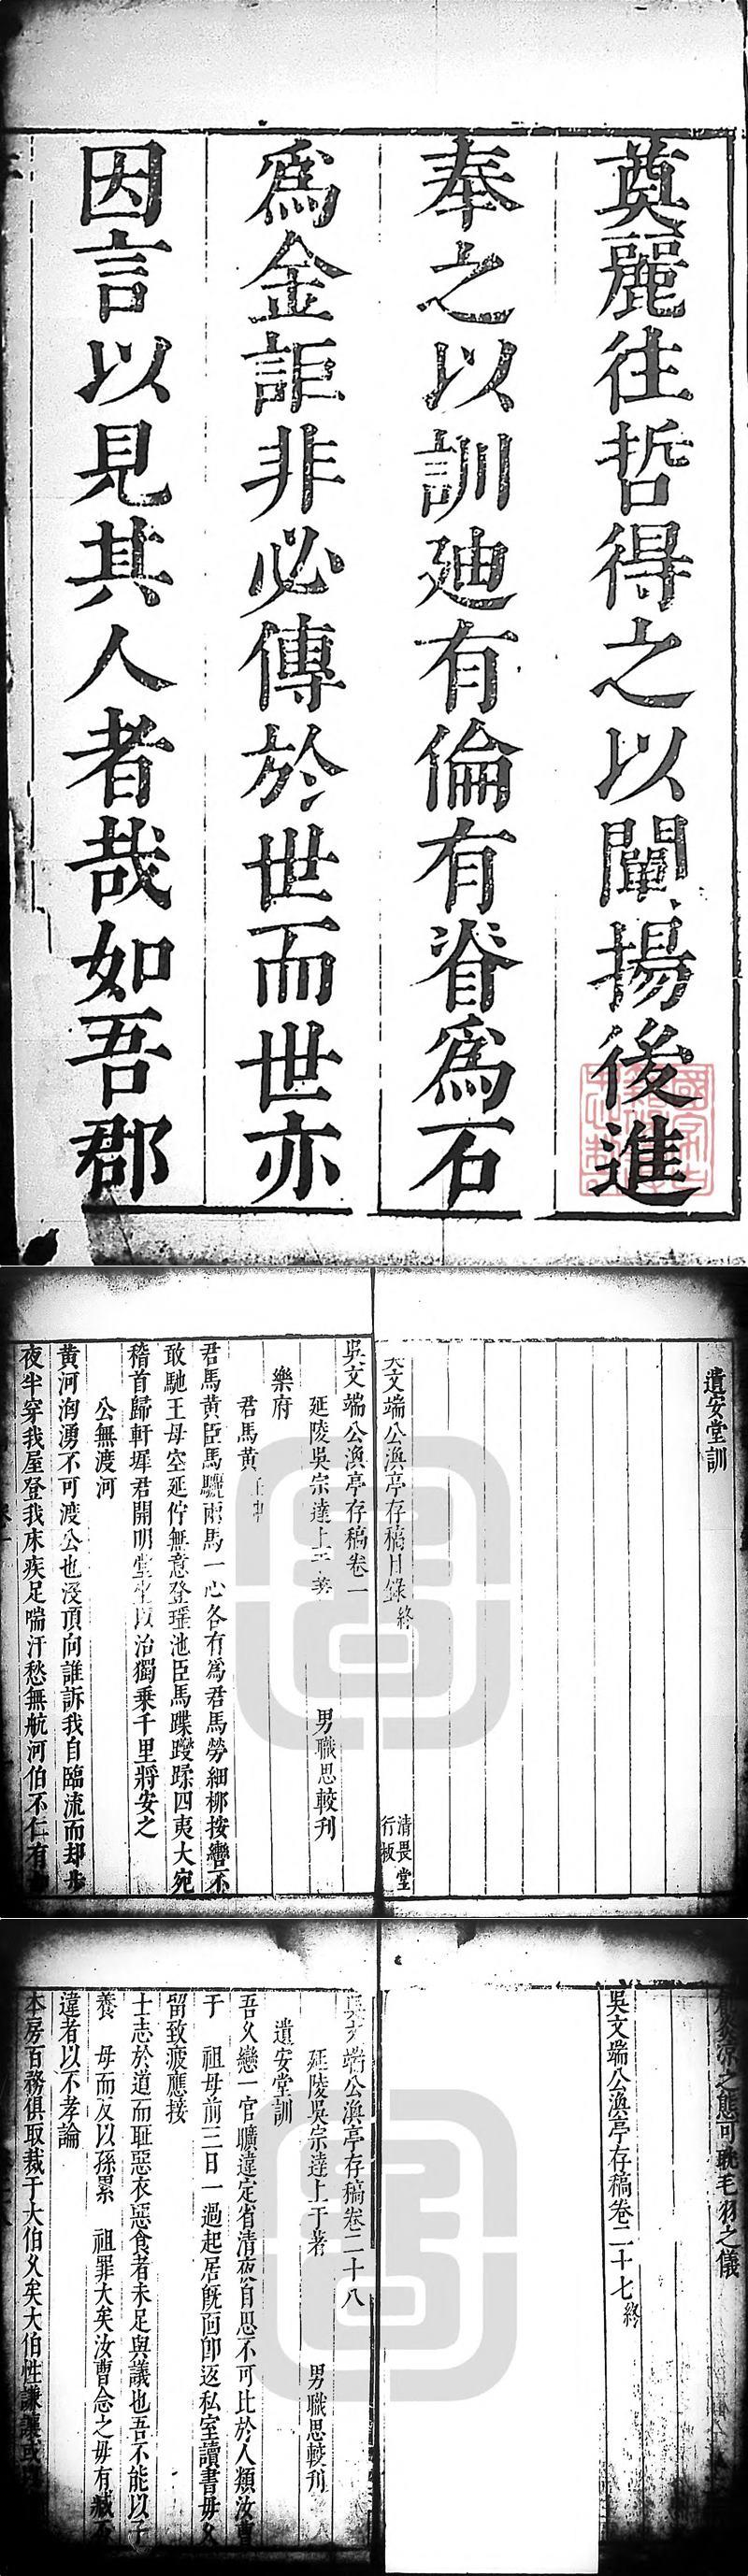 奠麗往哲得之以闡揚後進
奉之以訓廸有倫有脊爲石
爲金詎非必傳於世而世亦
因言以見其人者哉如吾郡
遺安堂訓
文端公渙亭存稿目錄終
清畏堂
行板
吳文端公渙亭存稿卷一
延陵吳宗達上于著 男職思較刊
樂府
君馬黃
君馬黃臣馬驪兩馬一心各有爲君馬勞細柳按轡不
敢馳王母空延佇無意登瑤池臣馬蹀躞蹂四夷大宛
稽首歸軒墀君開明堂坐以治獨乗千里將安之
公無渡河
黄河洶湧不可渡公也沒頂向誰訴我自臨流而却步
夜半穿我屋登我床疾足喘汗愁無航河伯不仁有
炎凉之態可聣毛羽之儀
吳文端公渙亭存稿卷二十七終
文端公渙亭存稿卷二十八
延陵吳宗達上于著 男職思較刊
遺安堂訓
吾久戀一官曠違定省清夜自思不可比於人類汝曹
于 祖母前三日一過起居旣面卽返私室讀書毋久
留致疲應接
士志於道而耻惡衣惡食者未足與議也吾不能以子
養 母而反以孫累 祖罪大矣汝曹念之毋有臧否
違者以不孝論
本房百務俱取裁于大伯久矣大伯性謙讓或